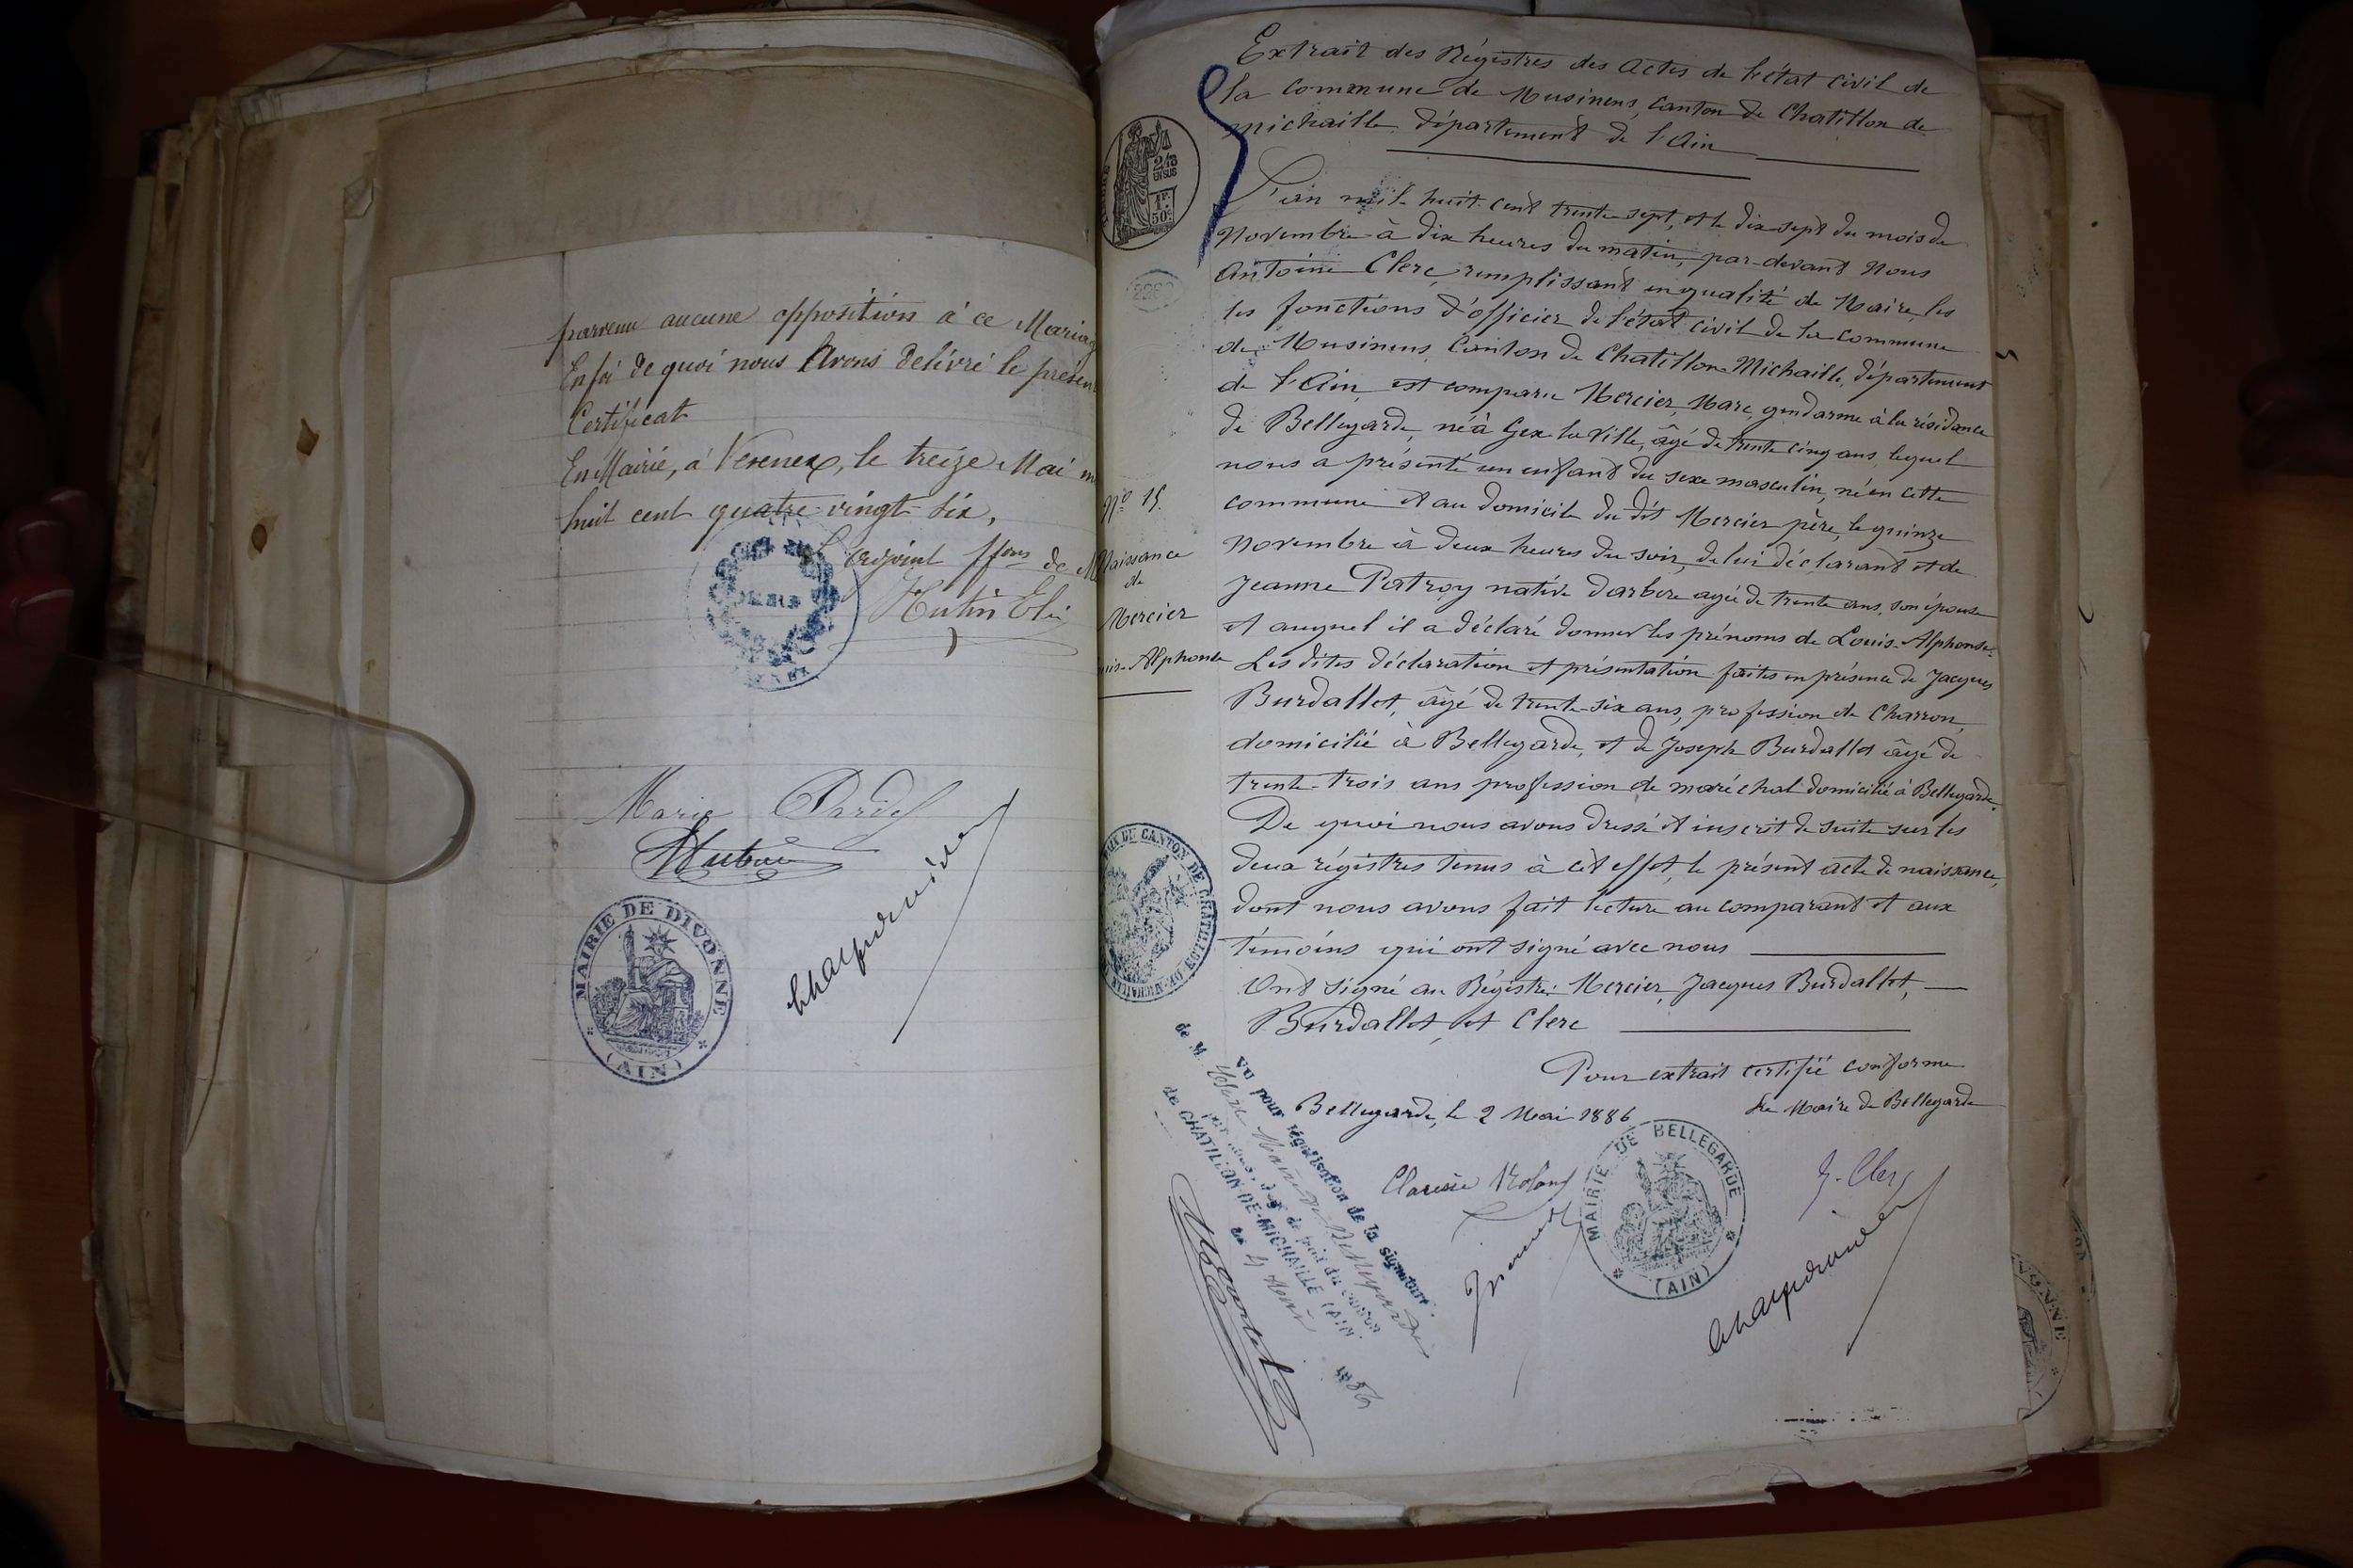 parvenu aucune opposition à ce Mariag
En foi de quoi nous avons délivré le présen
Certificat
En Mairie, à Vesenex, le treize Mai m
huit cent quatre vingt six,
L'adjoint ffons de M
Hutin Eli
Marie Parde
MAIRIE DE DIVONNE
(AIN)
Extrait des Régistres des actes de l'état civil de
la commune de Musinens, canton de Chatillon de
michaille, département de l'Ain
2/10
EN SUS
1F.
50c
L'an mil huit cent trente sept, et le dix sept du mois de
Novembre à dix heures du matin, par devant Nous
Antoine Clerc, remplissant en qualité de Maire, les
les fonctions d'officier de l'état civil de la commune
de Musinens Canton de Chatillon Michaille, département
de l'Ain, est comparu Mercier, Marc, gendarme à la résidance
de Bellegarde, né à Gex la Ville, âgé de trente cinq ans, lequel
nous a présenté un enfant du sexe masculin, né en cette
commune et au domicile du dit Mercier père, le quinze
Novembre à deux heures du soir, de lui déclarant et de
Jeanne Patroy native d'arbere agée de trente ans, son épouse
et auquel il a déclaré donner les prénoms de Louis-Alphonse.
Les dites déclaration et présentation faites en présence de Jacques
Burdallet, âgé de trente-six ans, profession de Charron,
domicilié à Bellegarde, et de Joseph Burdallet âgé de
trente-trois ans profession de maréchal domicilié à Bellegarde.
De quoi nous avons dressé et inscrit de suite sur les
deux régistres tenus à cet effet, le présent acte de naissance,
dont nous avons fait lecture au comparant et aux
témoins qui ont signé avec nous
Ont signé au Régistre: Mercier, Jacques Burdallet,
Burdallet, et Clerc
Pour extrait certifié conforme
Bellegarde, le 2 Mai 1886
Le Maire de Bellegarde
J. Clerc
MAIRIE DE BELLEGARDE
(AIN)
No 15.
Naissance
de
Mercier
uis-Alphonse
DE CANTON DE CHATILLON-DE-MICHAILLE
Vu pour légalisation de la signature
de M. Clerc Maire de Bellegarde
par nous, Juge de paix du canton
de CHATILLON-DE-MICHAILLE (AIN)
1886